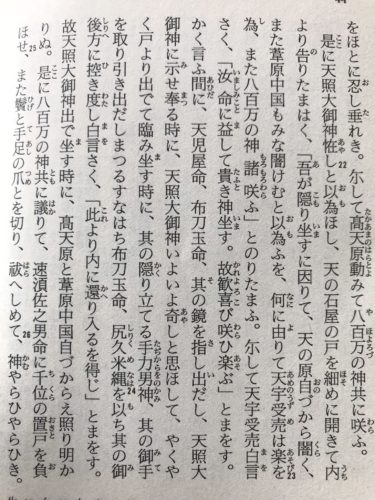 をほとに忍し垂れき。尓して髙天原動みて八百万の神共に咲ふ。
是に天照大御神恠しと以為ほし、天の石屋の戸を細めに開きて内
より告りたまはく、「吾が隠り坐すに因りて、天の原自づから闇く、
また葦原中国もみな闇けむと以為ふを、何に由りて天宇受売は楽を
為、また八百万の神諸咲ふ」とのりたまふ。尓して天宇受売白言
さく、「汝命に益して貴き神坐す。故歓喜び咲ひ楽ぶ」とまをす。
かく言ふ間に、天児屋命、布刀玉命、其の鏡を指し出だし、天照大
御神に示せ奉る時に、天照大御神いよいよ奇しと思ほして、やくや
く戸より出でて臨み坐す時に、其の隠り立てる手力男神、其の御手
を取り引き出だしまつるすなはち布刀玉命、尻久米縄を以ち其の御
後方に控き度し白言さく、「此より内に還り入るを得じ」とまをす。
故天照大御神出で坐す時に、髙天原と葦原中国自づからえ照り明か
りぬ。是に八百万の神共に議りて、速湏佐之男命に千位の置戸を負
ほせ、また鬚と手足の爪とを切り、祓へしめて、神やらひやらひき。